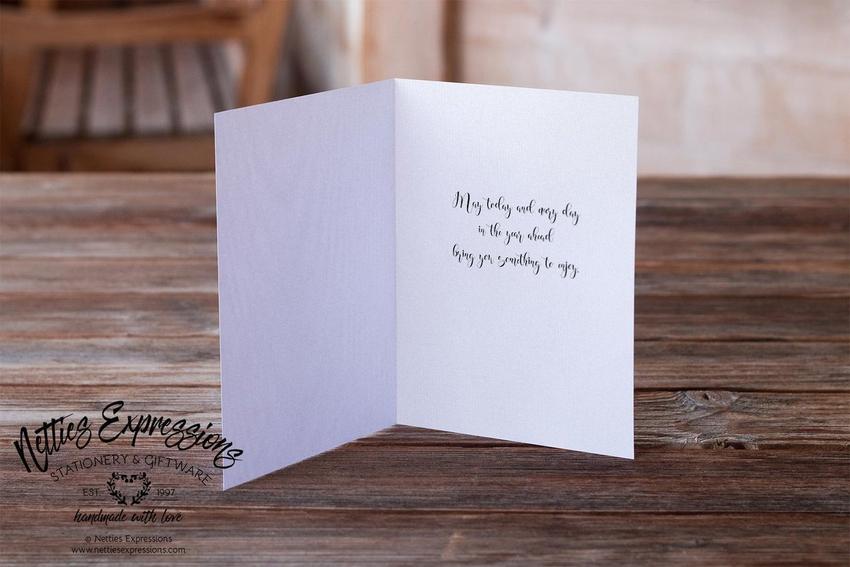 May today and every day
in the year ahead
bring you something to enjoy.
Netties Expressions
STATIONERY & GIFTWARE
EST 1997
handmade with love
© Netties Expressions
www.nettiesexpressions.com